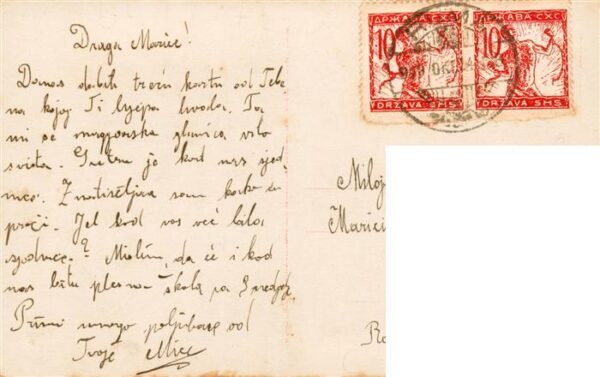 Draga Marice!
Danas dobih treću kartu od Tebe
na kojoj Ti lijepa hvala. Ta
mi se magjarska glavica vrlo
sviđa. Sretna je kod nas sjed
nica. Znatiželjna sam kako će
proći. Jel kod vas već bila
sjednica? Mislim, da će i kod
nas biti plesna škola za
Primi mnogo poljubaca od
Tvoje Mice
ДРЖАВА СХС
10
DRŽAVA SHS
ДРЖАВА СХС
10
DRŽAVA SHS
Miloj
Marici